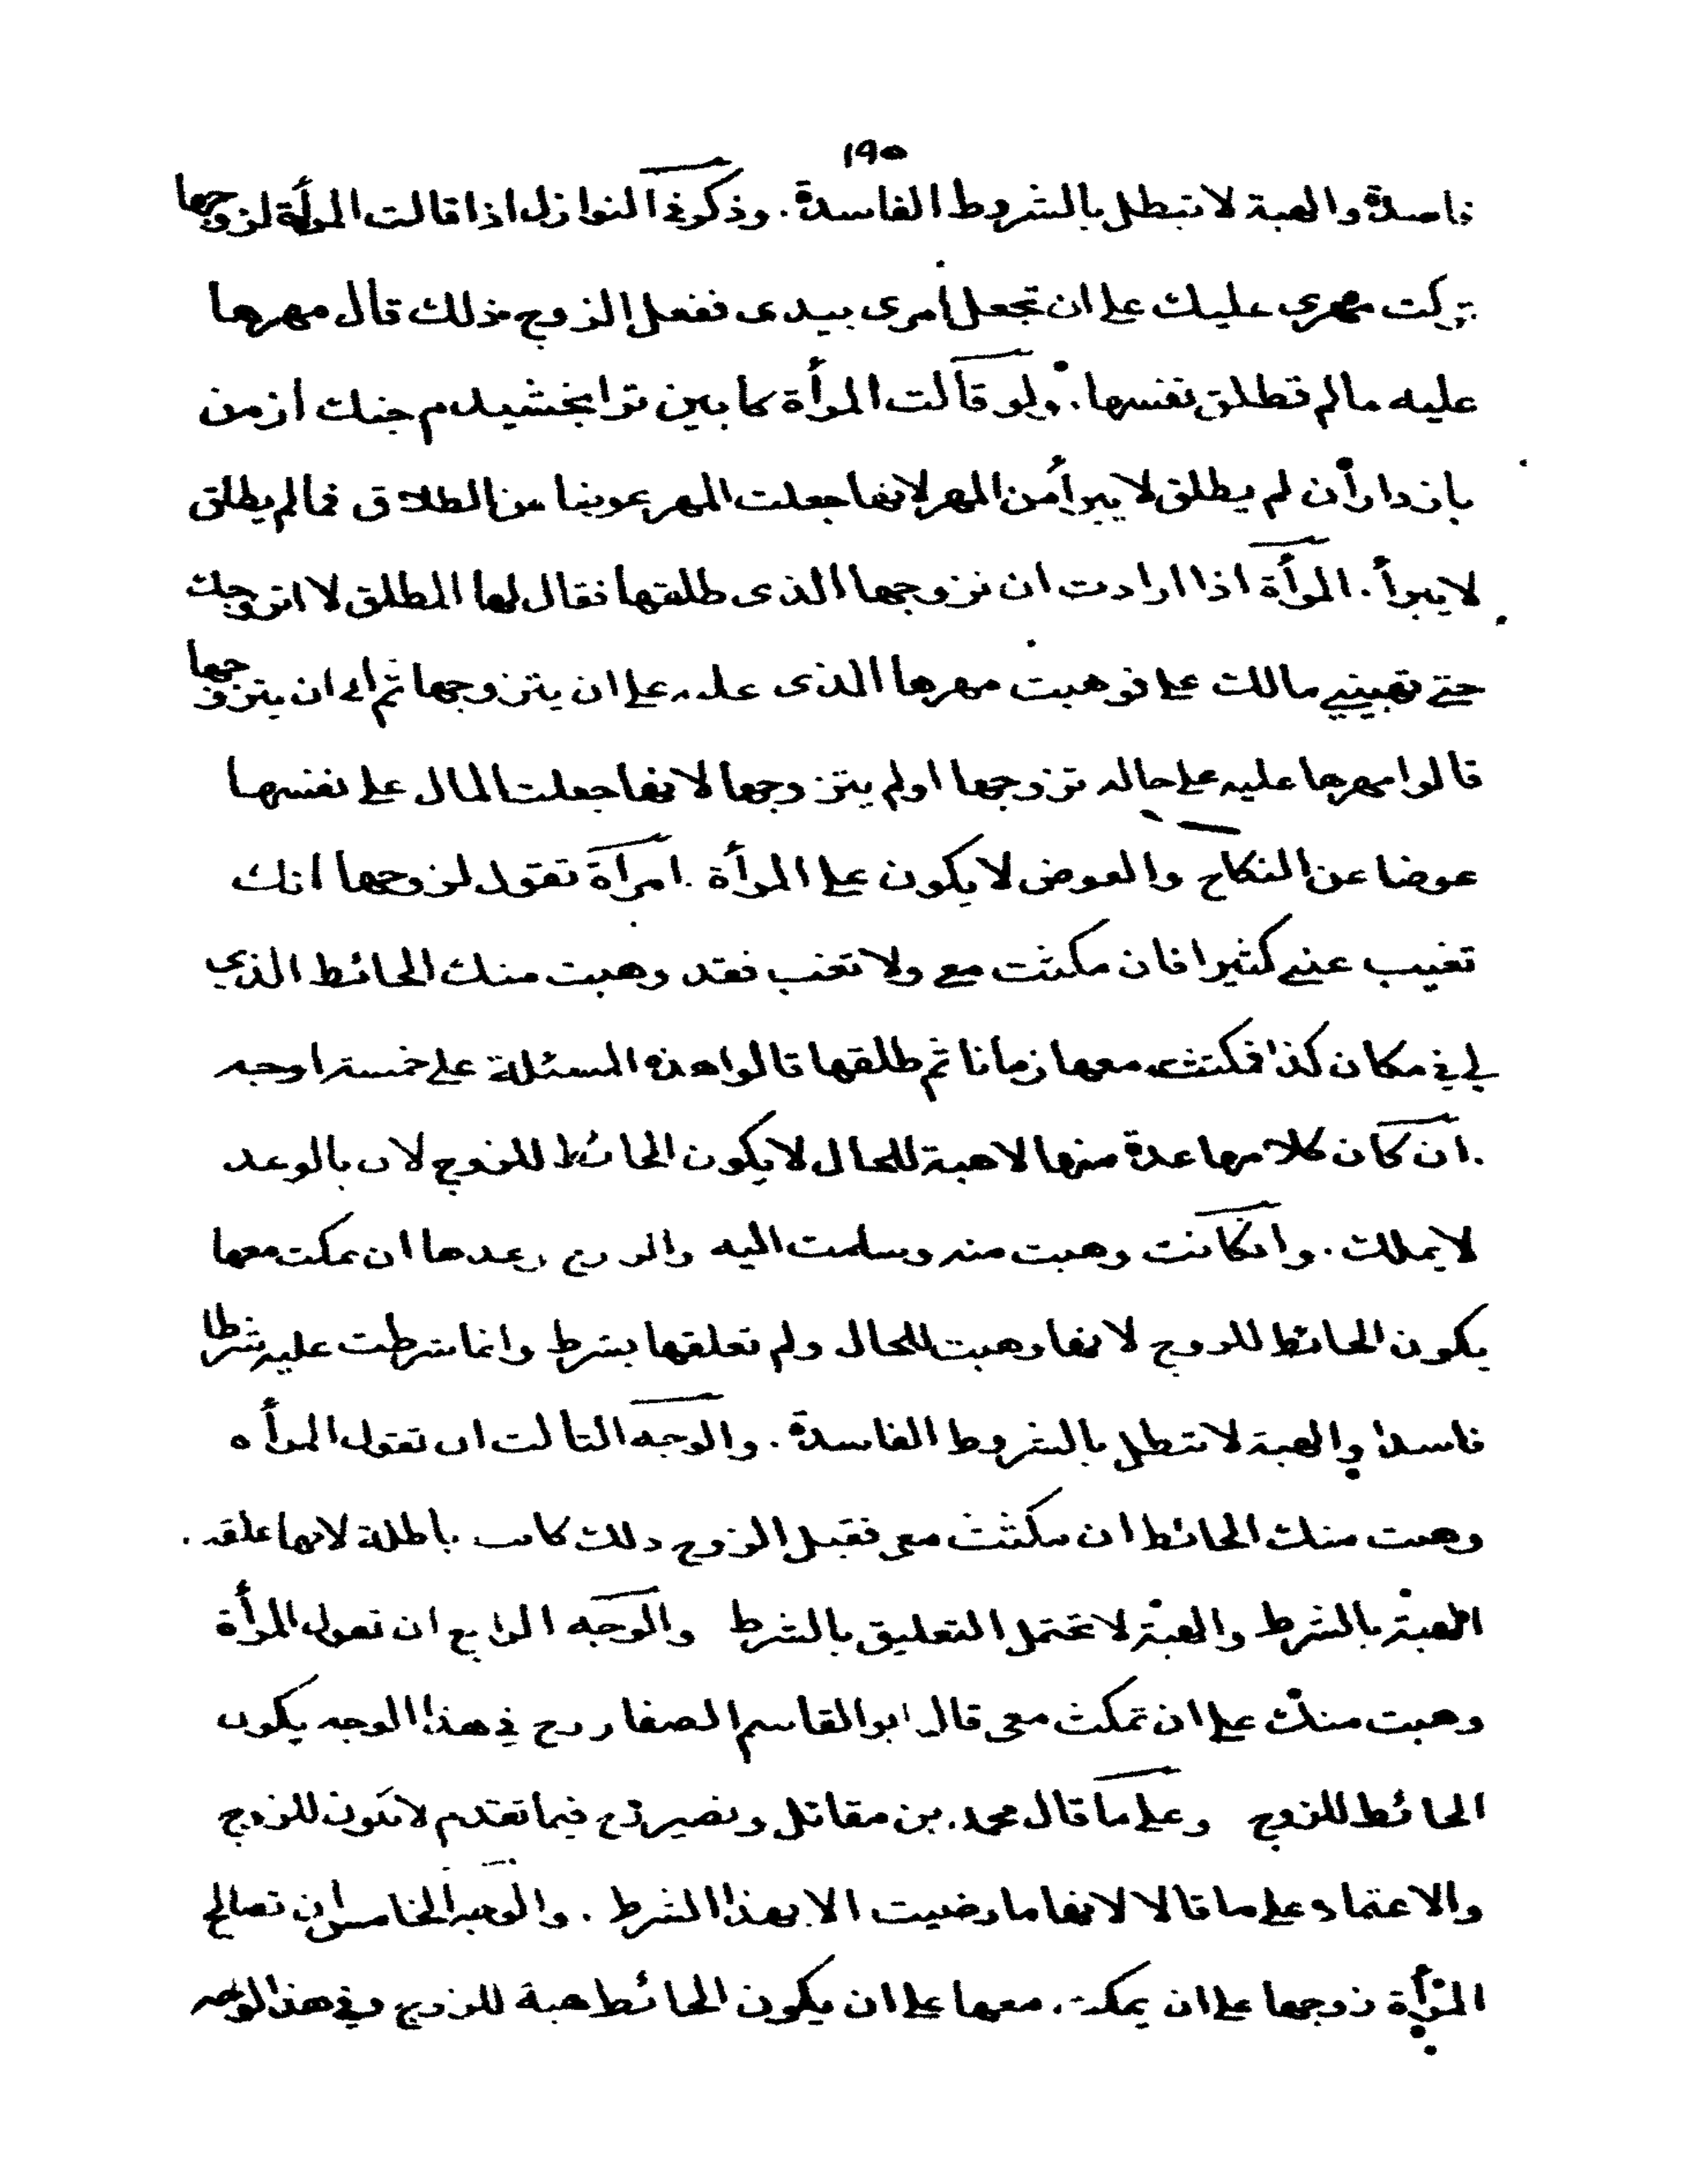 ١٩٥
فاسدة والهبة لا تبطل بالشروط الفاسدة . وذكر في النوازل اذا قالت المرأة لزوجها
تركت مهرى عليك على ان تجعل امرى بيدى ففعل الزوج ذلك قال مهرها
عليه مالم تطلق نفسها . ولو قالت المرأة كابين ترا بخشيدم چنك از من
بازدار أن لم يطلق لا يبرأ من المهر لانها جعلت المهر عوضا عن الطلاق فمالم يطلق
لا يبرأ . المرأة اذا ارادت ان تزوجها الذى طلقها فقال لها المطلق لا اتزوجك
حتى تهبيني مالك على فوهبت مهرها الذى عليه على ان يتزوجها ثم ابى ان يتزوجها
قالوا مهرها عليه على حاله تزوجها اولم يتزوجها لانها جعلت المال على نفسها
عوضا عن النكاح والعوض لا يكون على المرأة . امرأة تقول لزوجها انك
تغيب عني كثيرا فان مكثت مع ولا تغب فقد وهبت منك الحائط الذي
لي في مكان كذا فمكث معها زمانا ثم طلقها قالوا هذه المسئلة على خمسة اوجه
. ان كان كلامها عدة منها لا هبة للحال لا يكون الحائط للزوج لان بالوعد
لا يملك . وانكانت وهبت منه وسلمت اليه والزوج وعدها ان يمكث معها
يكون الحائط للزوج لانها وهبت للحال ولم تعلقها بشرط وانما شرطت عليه شرطا
فاسدا والهبة لا تبطل بالشروط الفاسدة . والوجه الثالث ان تقول المرأه
وهبت منك الحائط ان مكثت معى فقبل الزوج ذلك كانت باطلة لانها علقت .
الهبة بالشرط والهبة لا تحتمل التعليق بالشرط والوجه الرابع ان تقول المرأة
وهبت منك على ان تمكث معى قال ابو القاسم الصفار رح في هذا الوجه يكون
الحائط للزوج وعلى ما قال محمد بن مقاتل ونصير رح فيما تقدم لا تكون للزوج
والاعتماد على ما قالا لانها ما رضيت الا بهذا الشرط . والوجه الخامس ان تصالح
المرأة زوجها على ان يمكث معها على ان يكون الحائط هبة للزوج وفي هذا الوجه